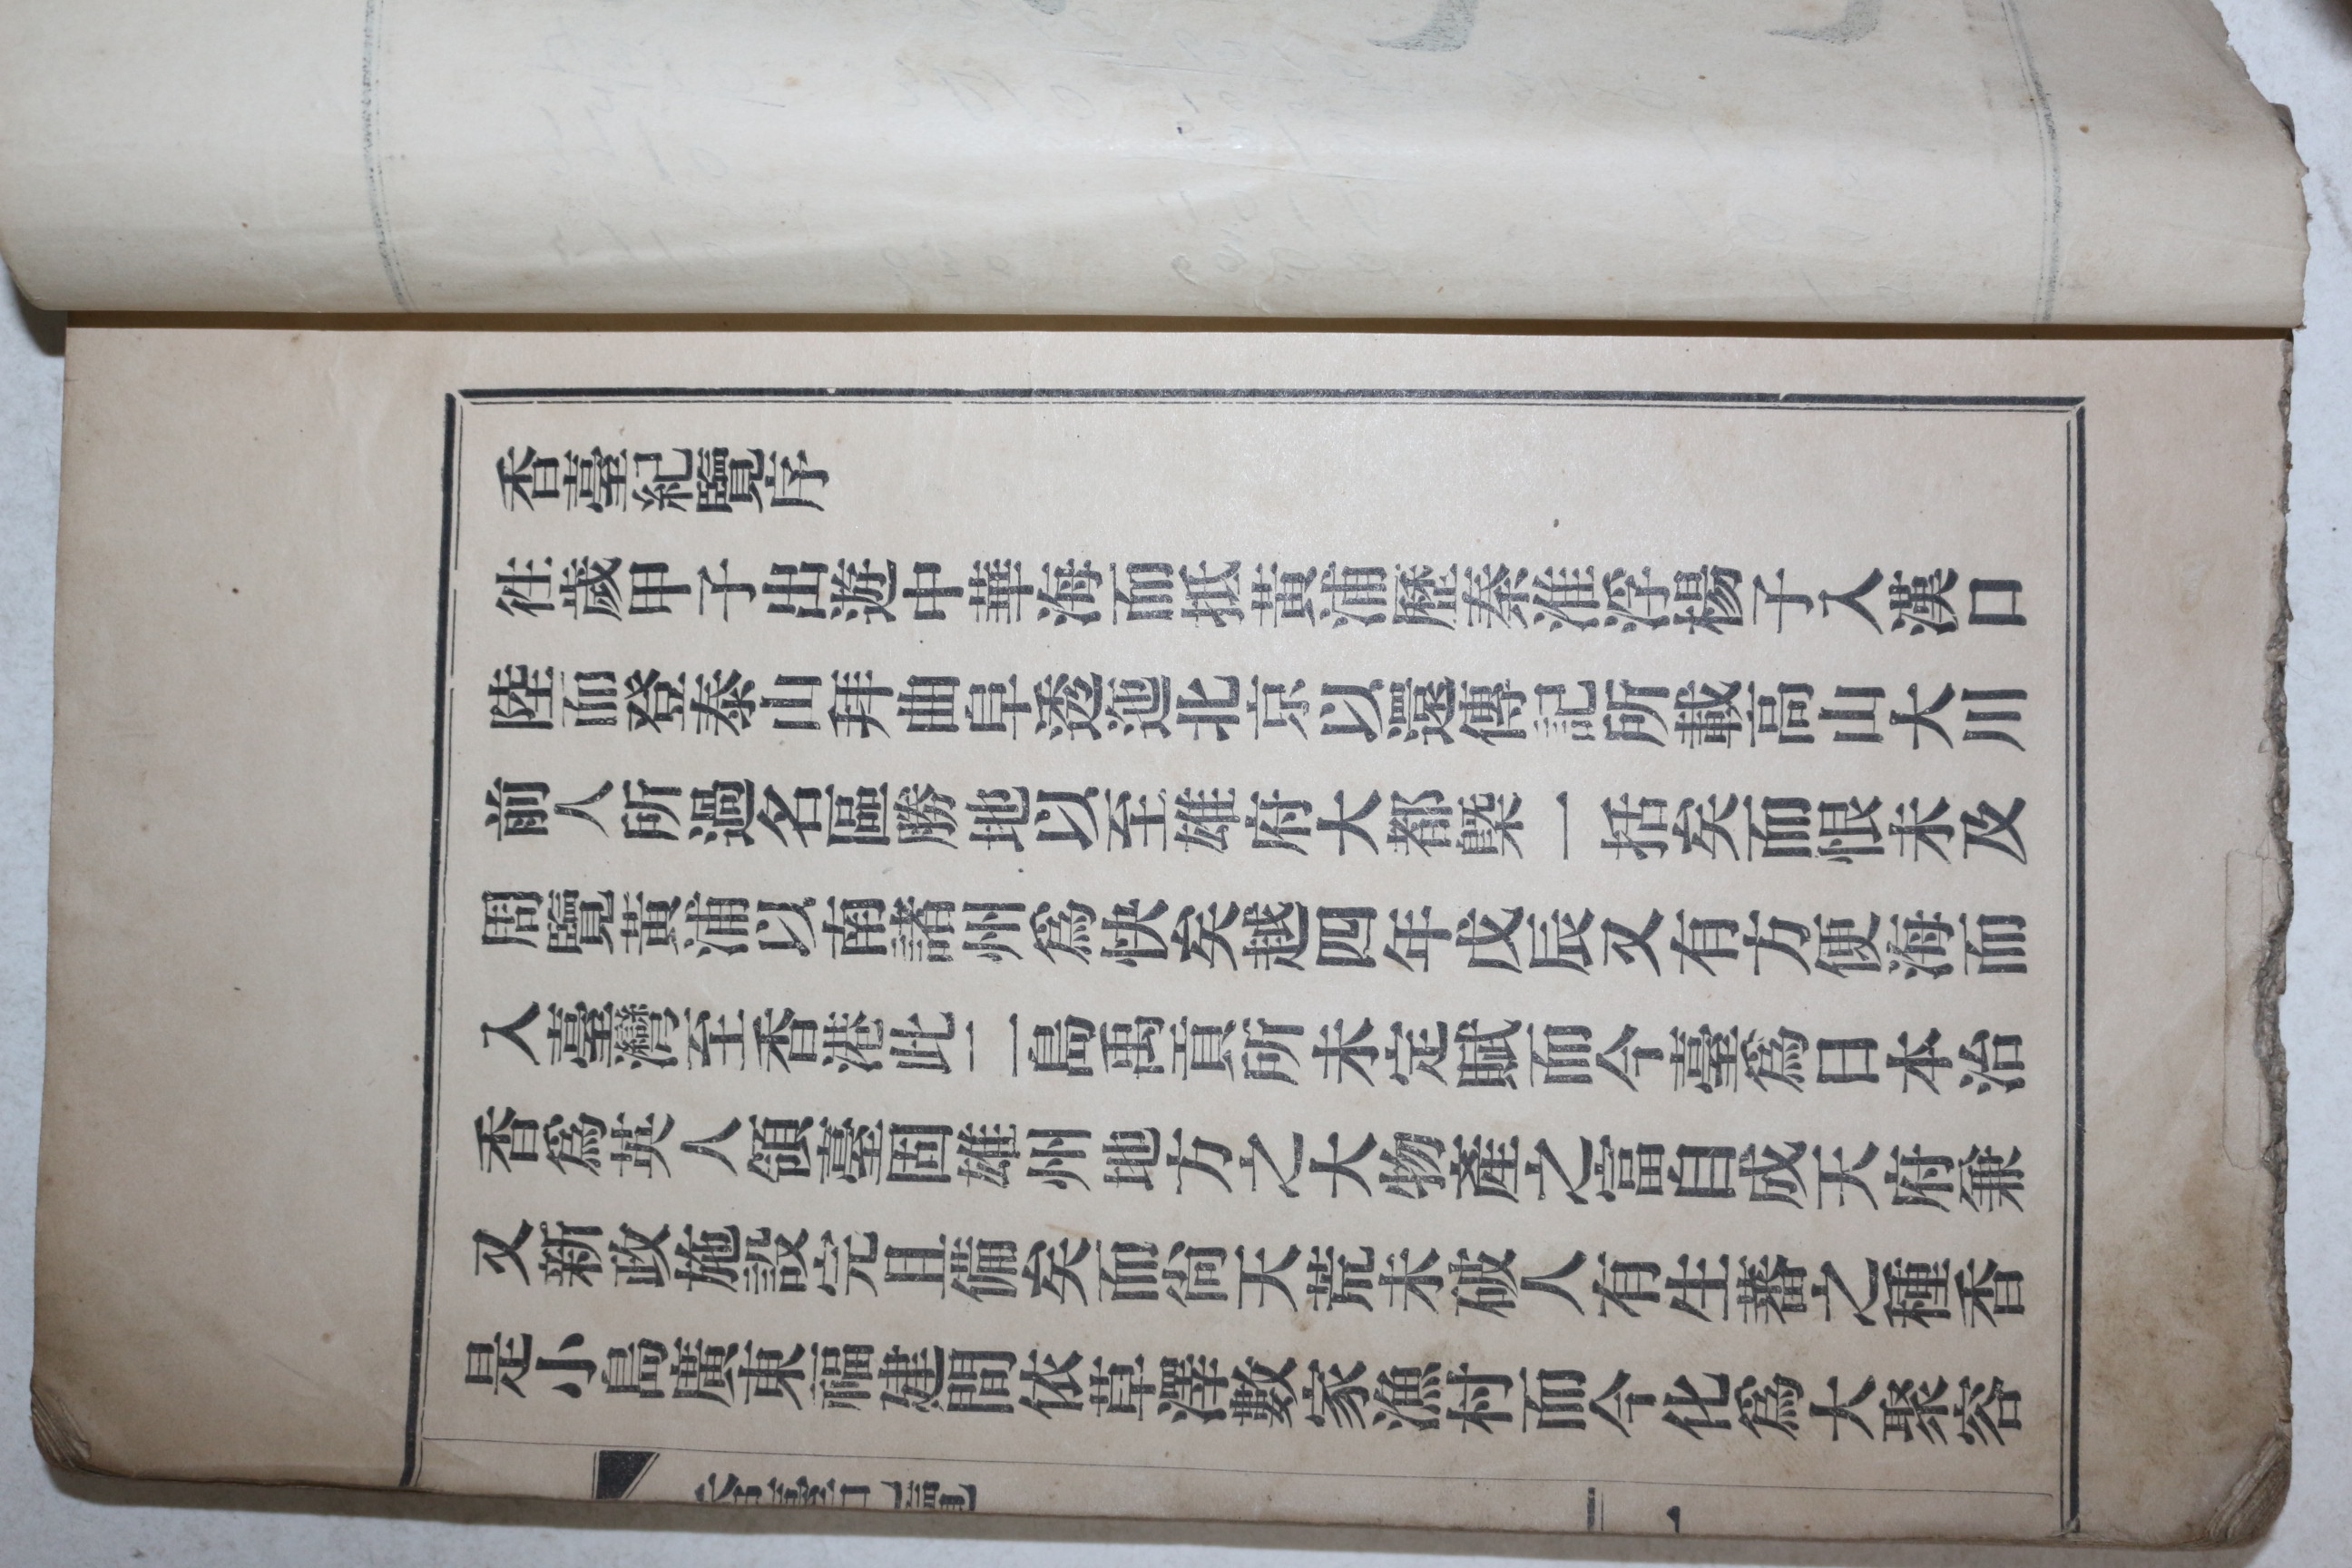 香臺紀覽序
往歲甲子出遊中華海而抵黃浦歷秦淮浮楊子入漢口
陸而登泰山拜曲阜逶迤北京以還傳記所載高山大川
前人所過名區勝地以至雄府大都槩一括矣而恨未及
周覽黃浦以南諸州爲快矣越四年戊辰又有方便海而
入臺灣至香港此二島禹貢所未定賦而今臺爲日本治
香爲英人領臺固雄州地方之大物產之富自成天府兼
又新政施設完且備矣而尙天荒未破人有生蕃之種香
是小島廣東福建間依草澤數家漁村而今化爲大聚落
香臺紀覽